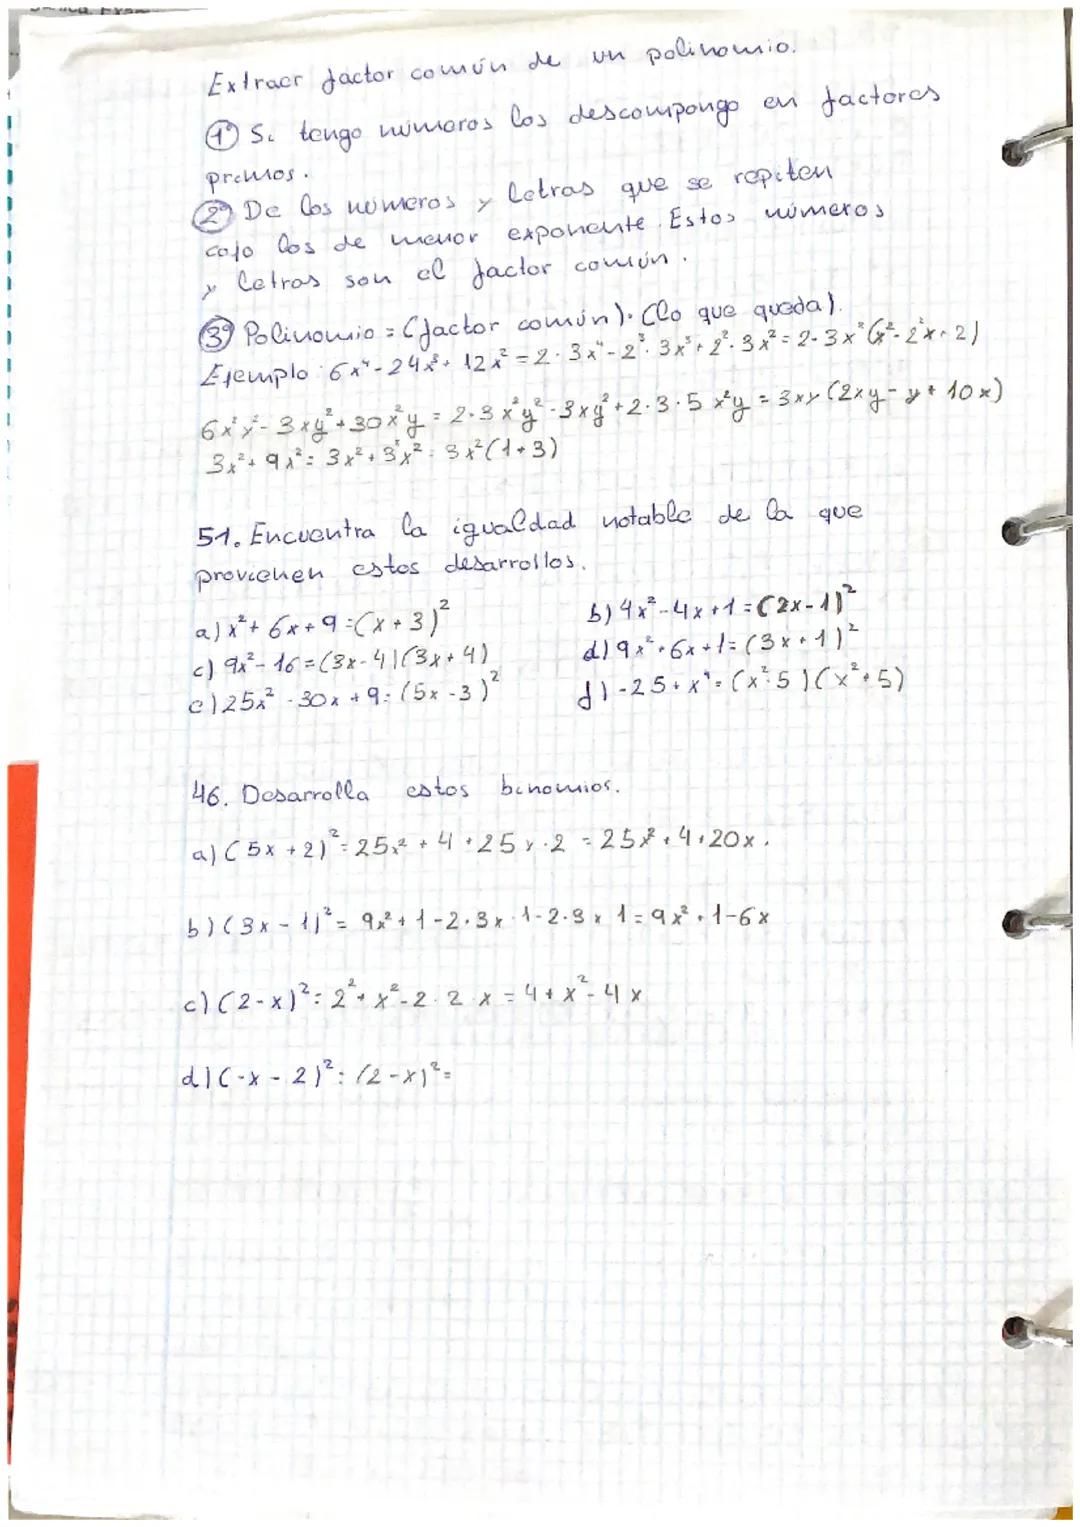 Extraer factor común de un polinomio.
1º Si tengo números los descompongo en factores
primos.
2º De los números y letras que se repiten
cojo los de menor exponente. Estos números
y letras son el factor común.
3º Polinomio = (factor común)·(lo que queda).
Ejemplo: 6x⁴-24x³+12x² = 2·3x⁴-2³·3x³+2²·3x² = 2·3x²(x²-2²x+2)
6x²y²-3xy²+30x²y = 2·3x²y²-3xy²+2·3·5x²y = 3xy(2xy-y+10x)
3x²+9x² = 3x²+3²x² = 3x²(1+3)
51. Encuentra la igualdad notable de la que
provienen estos desarrollos.
a) x²+6x+9=(x+3)² b) 4x²-4x+1=(2x-1)²
c) 9x²-16=(3x-4)(3x+4) d) 9x²+6x+1=(3x+1)²
e) 25x²-30x+9=(5x-3)² f) -25+x⁴=(x²-5)(x²+5)
46. Desarrolla estos binomios.
a) (5x+2)²=25x²+4+25x·2=25x²+4+20x.
b) (3x-1)²=9x²+1-2·3x·1-2·3x 1=9x²+1-6x
c) (2-x)²=2²+x²-2·2·x=4+x²-4x
d) (-x-2)²=(2-x)²=